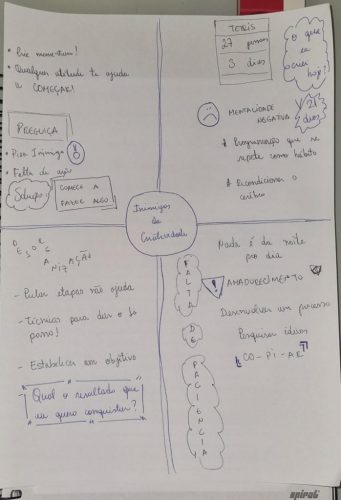 • Crie momentum!
• Qualquer atitude te ajuda
a COMEÇAR!
PREGUIÇA
• Pior Inimigo
• Falta de ação
Solução:
COMECE A
FAZER ALGO
TETRIS
27 pessoas
3 dias
O que
eu
criei
hoje?
MENTALIDADE
NEGATIVA
21
dias
Programação que se
repete como hábito
Recondicionar o
cérebro
Inimigos
da
Criatividade
DESORGANIZAÇÃO
- Pular etapas não ajuda
- Técnicas para dar o 1º
passo!
- Estabelecer um objetivo
Qual o resultado que
eu quero conquistar?
FALTA
DE
PACIÊNCIA
Nada é da noite
pro dia
AMADURECIMENTO
Desenvolver um processo
Pesquisar ideias
CO-PI-AR
spiral